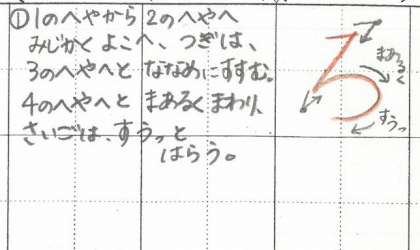 ①1のへやから2のへやへ
みじかくよこへ、つぎは、
3のへやへとななめにすすむ。
4のへやへとまあるくまわり、
さいごは、すうっと
はらう。
ろ
まあるく
すうっ